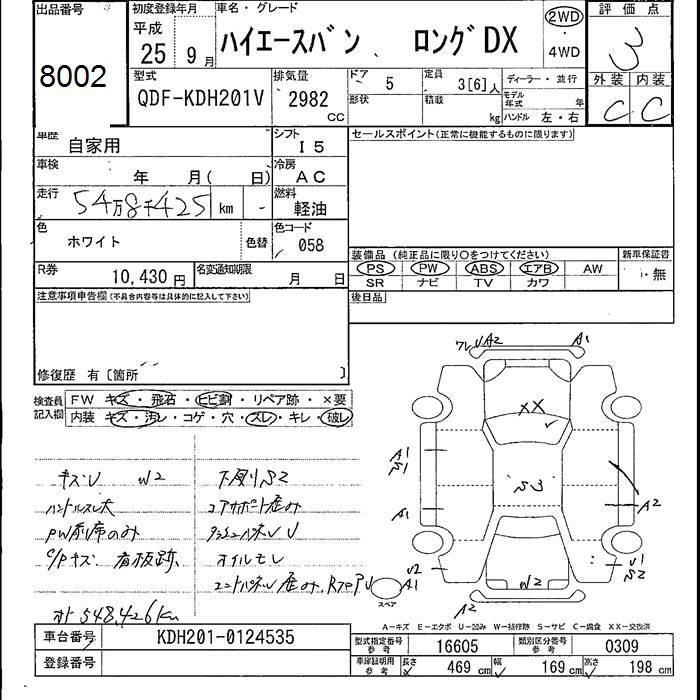 出品番号
8002
初度登録年月
平成
25 9月
車名・グレード
ハイエースバン 、 ロングDX
2WD
・
4WD
評価点
3
外装 内装
C C
型式
QDF-KDH201V
排気量
2982
CC
ドア
5
形状
定員
3[6]人
積載
kg
ディーラー・並行
モデル年式 年
ハンドル 左・右
車歴
自家用
シフト
I5
車検
年 月( 日)
冷房
AC
走行
54万8千425 km -
燃料
軽油
色
ホワイト
色替
色コード
058
R券
10,430 円
名変通知期限
月 日
セールスポイント(正常に機能するものに限ります)
装備品 (純正品に限り○をつけてください)
PS PW ABS エアB AW
SR ナビ TV カワ
新車保証書
・無
後日品
注意事項申告欄(不具合内容等は具体的に記入して下さい)
修復歴 有〔箇所 〕
検査員記入欄
FW キズ・飛石・ヒビ割・リペア跡・×要
内装 キズ・汚レ・コゲ・穴・スレ・キレ・破レ
キズU W2
ハンドルスレ大
PW前席のみ
C/Pキズ 看板跡
メーター548,426km
下廻りS2
コアサポート歪み
オイルモレ
ワレ UA2 A1
XX
A1
S1
S3
A1
A2
U2
A1
U1
S2
W2
A2
スペア
A-キズ E-エクボ U-凹み W-補修跡 S-サビ C-腐食 XX-交換済
車台番号
KDH201-0124535
登録番号
型式指定番号
参考
16605
類別区分番号
参考
0309
車庫証明用
参考
長さ 469 cm
幅 169 cm
高さ 198 cm